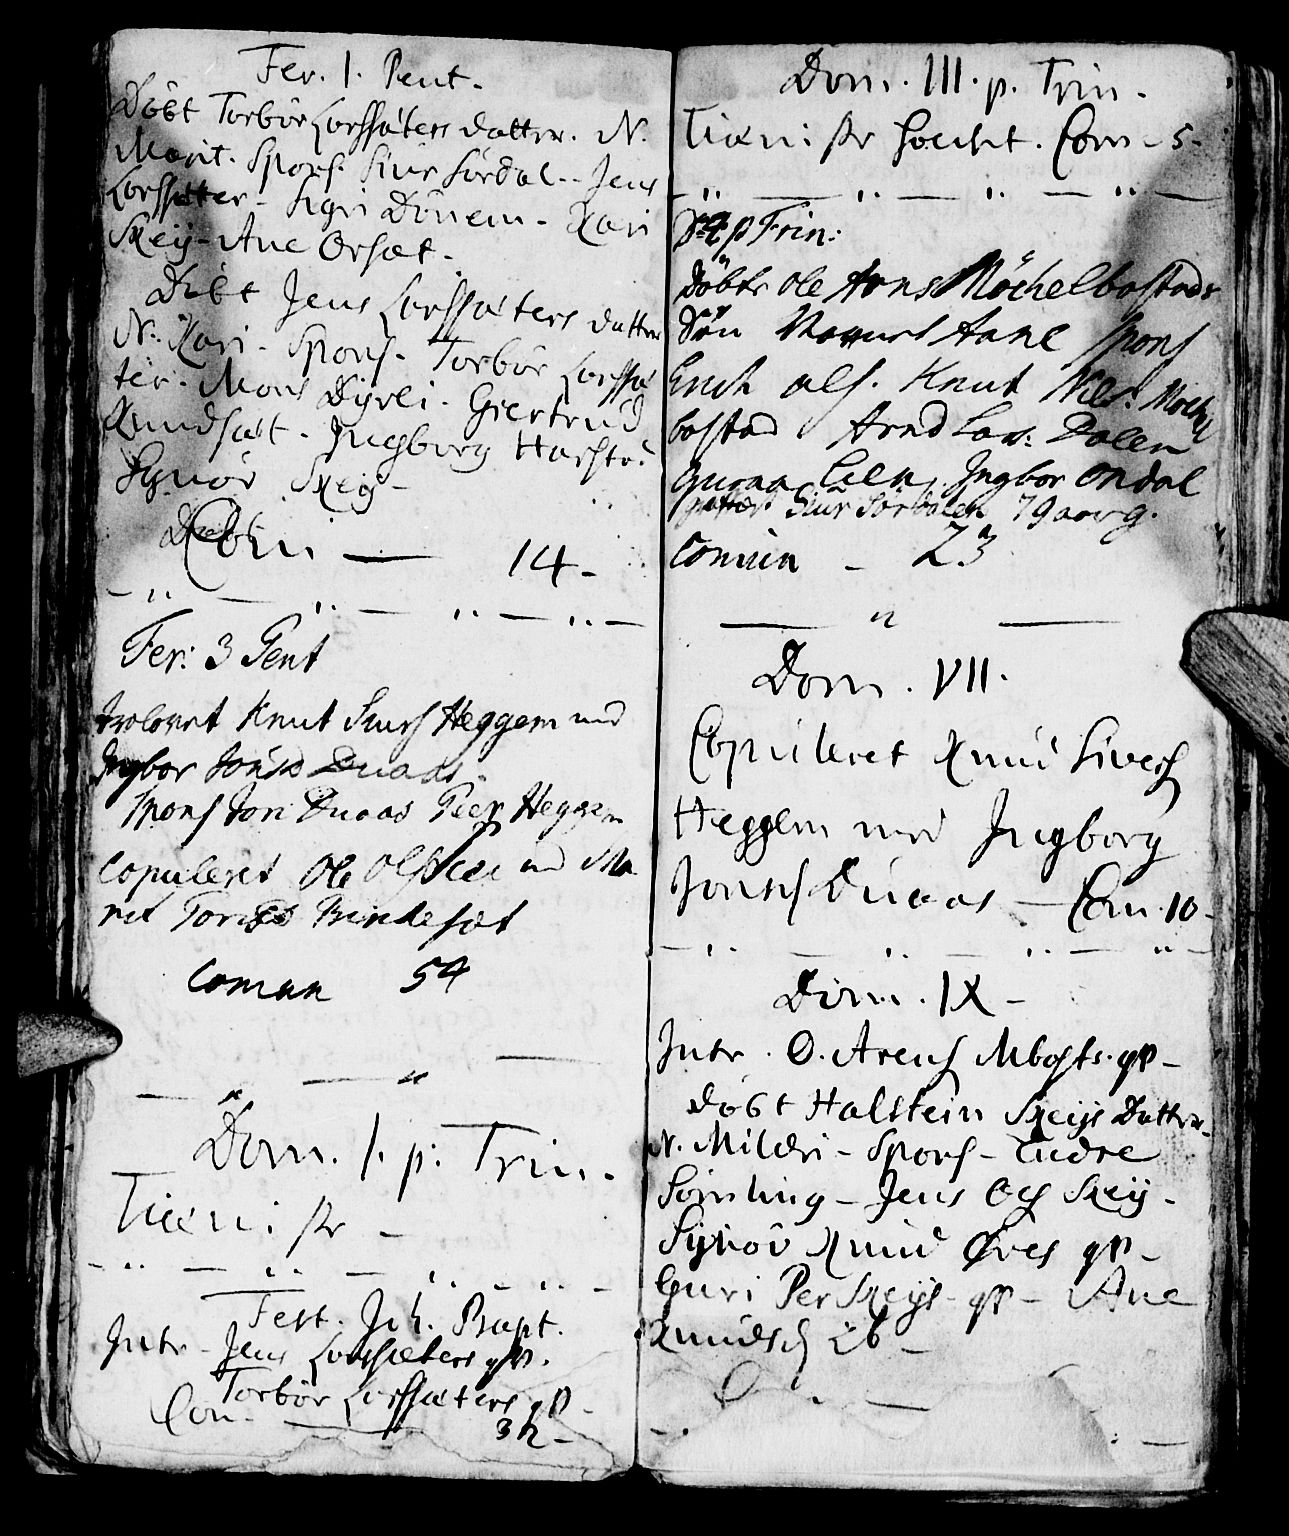 Fer. 1. Pent.
Döbt Torbör Lorssæters datter. N.
Marit. Spons. Siur Sördal - Jens
Lorssætter - Sigri Dönem - Kari
Skeij - Ane Orsæt.
Döbt Jens Lorssæters datter
N. Kari - Spons. Torbör Lorssæ
ter. Mons Dijrli. Giertrud
Knudsæt. Ingborg Harstad
Synör Skeij -
Com — 14 -
Fer: 3 Pent
trolovet Knut Siurs Heggem med
Ingbor Jonsd Duaas.
Spons Jon Duaas Peer Heggem
Copuleret Ole Ols med Ma
rit Tores Brindesæt
Comun 54
Dom. 1. p. Trin.
Tienniste -
Fest. Joh. Bapt.
Intr - Jens Lorssæters qv.
Torbör Lorssæters qv -
Con. — 32 -
Dom. III. p. Trin.
Tienniste holdt. Com - 5 -
D 4 p Trin:
döbte Ole Arns Möchelbostads
Sön Spons
Erich Ols. Knut Nils: Möchel
bostad Arnd Lar: Dalen
Guroa Ingbor Ondal
Siur Sördalen 79 aar g.
Comun - 23
Dom. VII.
Copuleret Knud Sivers
Heggem med Ingborg
Jons Duaas — Com. 10 -
Dom. IX -
Intr. O. Arens Mbosts. qv -
döbt Halstein Skeijs Datter
N. Mildri - Spons - Endre
Sömling - Jens Ols Skeij -
Sijnöv Knud Öies qv -
Guri Per Skeijs qv - Ane
Knudsd